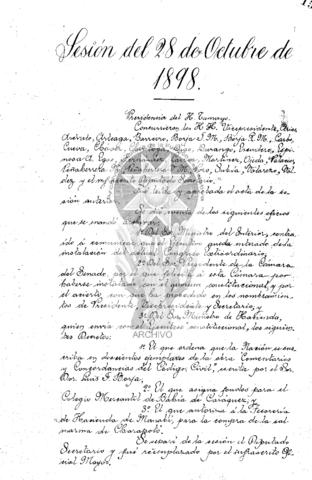 Sesión del 28 de Octubre de
1898.
Presidencia del H. Tamayo.
Concurrieron los H. H. Vicepresidente, Arias
Arévalo, Arteaga, Barreiro, Borja J. M., Borja R. M., Carbo,
Cueva, Chaves, Durango, Escudero, Espi-
nosa A., Egas, Martínez, Ojeda, Palacios,
Peñaherrera, Subía, Valarezo, Val-
dez y el infrascrito Diputado Secretario.
leída y aprobada el acta de la se-
sión anterior
de los siguientes oficios
que se mandó
Ministro del Interior, contraí-
do á comunicar queda enterado de la
instalación del actual Congreso Extraordinario;
2º Del Presidente de la Cámara
del Senado, por el que felicita á esta Cámara por
haberse instalado constitucional, y por
el acierto con que ha procedido en los nombramien-
tos de Presidente, Vicepresidente y Secretario; y
3º Del Sr. Ministro de Hacienda,
quien envía con el constitucional, los siguien-
tes Decretos:
1º El que ordena que la Nación se sus-
criba en doscientos ejemplares de la obra "Comentarios
y Concordancias del Código Civil", escrita por el Sr.
Dor. Luis F. Borja;
2º El que asigna fondos para el
Colegio Mercantil de Bahía de Caráquez; y
3º El que autoriza á la Tesorería
de Hacienda de Manabí, para la compra de la sal
marina de Charapotó.
Se separó de la sesión el Diputado
Secretario y fué reemplazado por el infrascrito Ofi-
cial Mayor.
ARCHIVO